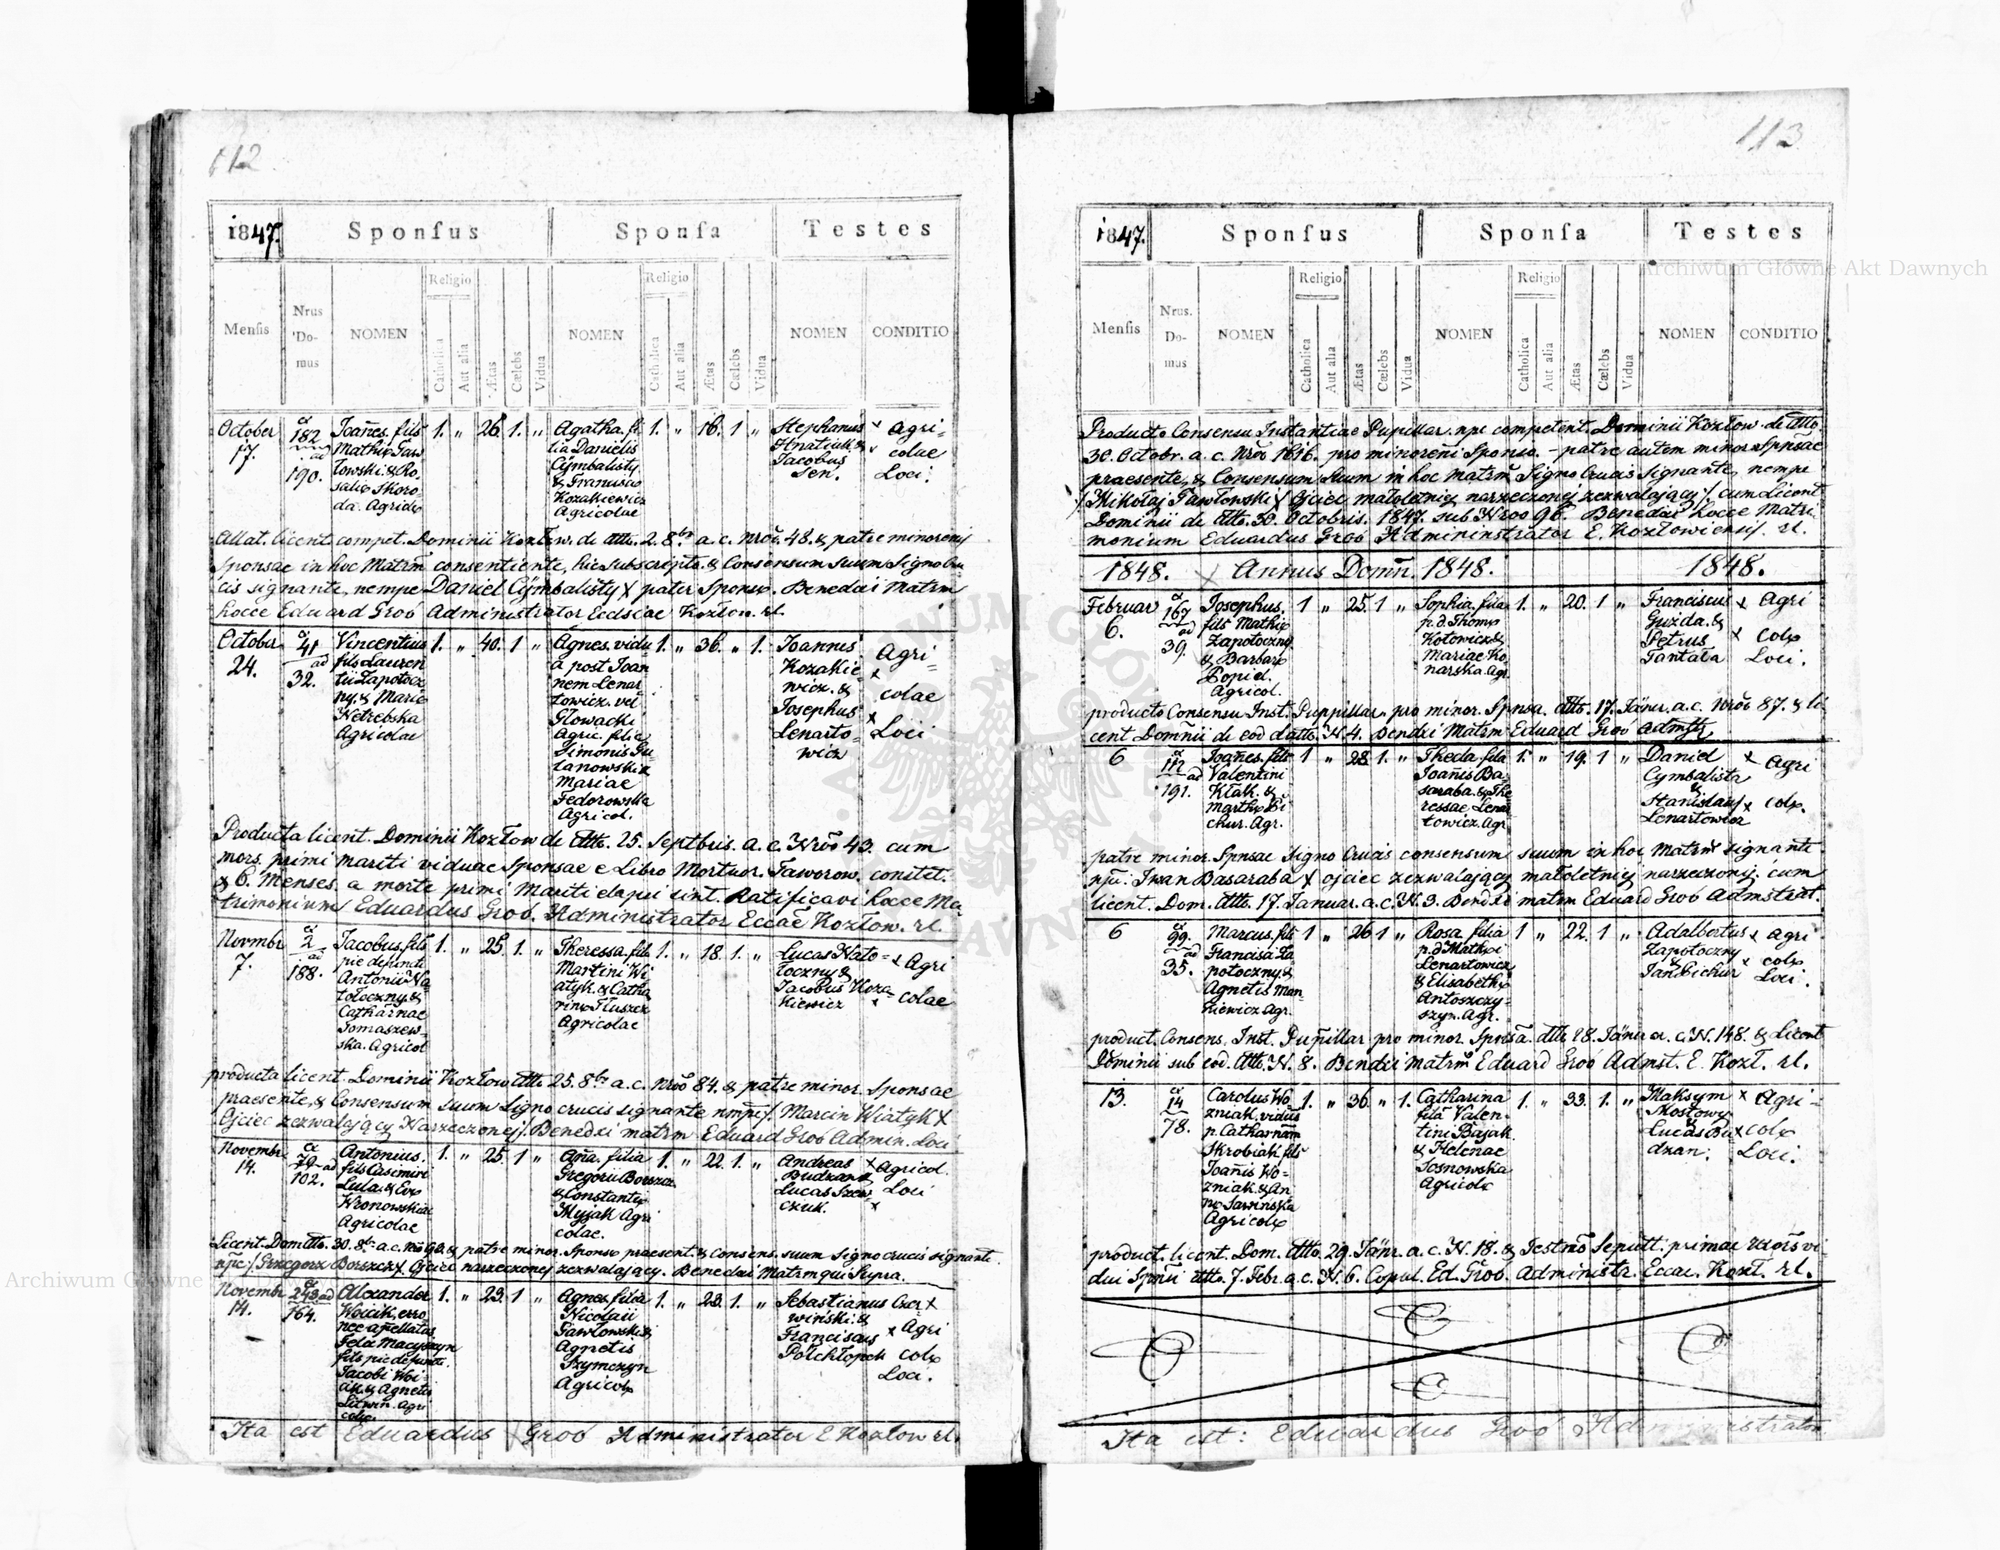 112
1847.
Sponſus
Sponſa
Testes
Menſis
Nrus Domus
NOMEN
Religio
Catholica
Aut alia
Ætas
Cælebs
Vidua
NOMEN
Religio
Catholica
Aut alia
Ætas
Cælebs
Vidua
NOMEN
CONDITIO
October 17.
ex 182 ad 190.
Joañes. fils
Mathiæ Paw
łowski. & Ro
saliæ Skoro
da. Agricolæ
1. „ 26. 1. „
Agatha. fi
lia Danielis
Cymbalisty
& Franusiae
Kozakiewicz
Agricolae
1. „ 16. 1 „
Stephanus
Hnatiuk. &
Jacobus
Sen.
x Agri-
x colae
Loci.
Allat. licent. compet. Dominii Kozłow. de dtto. 2. 8bris a. c. Nrŏ. 48. & patre minorenis
Sponsae in hoc Matrm̃ consentiente, hic subscripto. & Consensum suum Signo Cru
cis signante, nempe Daniel Cymbalisty X pater Sponsæ. Benedixi Matrm
hocce Eduard Groó Administrator Ecclsiae Kozłow. rl.
October 24.
ex 41 ad 32.
Vincentius
fils Lauren
tii Zapotocz
ny. & Mariæ
Netrebska
Agricolae
1. „ 40. 1 „
Agnes. vidu
a post Joan
nem Lenar
towicz. vel
Głowacki
Agric. filia
Simonis Gu
lanowski &
Mariae
Fedorowska
Agricol.
1. „ 36. „ 1.
Joannes
Kozakie
wicz. &
Josephus
Lenarto-
wicz
Agri-
x
colae
x Loci
Producta licent. Dominii Kozłow de dtto. 25. Septbris. a. c. Nrŏ 43. cum
mors. primi mariti viduae Sponsae e Libro Mortuor. Jaworow. constet.
& 6. Menses. a morte primi Mariti elapsi sint. Ratificavi hocce Ma-
trimonium Eduardus Groó. Administrator Eccae Kozłow. rl.
Novmbr 7.
ex 2 ad 188.
Jacobus. fils
pie defuncti
Antonii Na
tołoczny. &
Catharinae
Tomaszew-
ska. Agricol
1. „ 25. 1. „
Theressa. filia
Martini Wi
atyk. & Catha
rinæ Tłuszcz
Agricolae
1. „ 18. 1. „
Lucas Nato-
łoczny &
Jacobus Koza-
kiewicz
x Agri
x colae
producta licent. Dominii Kozłow dtto 25. 8bris a. c. Nrŏ 84. & patre minor. Sponsae
praesente, & Consensum suum signo crucis signante nmpe/. Marcin Wiatyk X
Ojciec zezwalający Narzeczonej/. Benedixi matrm Eduard Groó Admin. Loci
Novembr 14.
ex 79 ad 102.
Antonius.
fils Casimiri
Lula. & Evæ
Wronowskiae
Agricolae
1. „ 25. 1 „
Aña. filia
Gregorii Borszcz
& Constantiæ
Myzak Agri
colae.
1. „ 22. 1. „
Andreas
Budzan &
Lucas Szew-
czuk.
x Agricol.
Loci
x
Licent. Dom dtto. 30. 8br. a. c. Nrŏ 90. & patre minor. Sponsæ praesent. & Consens. suum Signo crucis signante.
npe:/ Grzegorz Borszcz X Ojciec narzeczonej zezwalający. Benedixi Matrm qui Supra.
Novembr 14.
ex 243 ad 164.
Alexander
Woicik, erro
nee apellatus
Felix Maczyszyn
fils pie defuncti.
Jacobi Woi-
cik. & Agnetis
Litwin. Agri
colæ.
1. „ 23. 1 „
Agnes filia
Nicolaii
Pawłowski &
Agnetis
Szymczyn
Agricolæ
1. „ 23. 1. „
Sebastianus Czer
wiński. &
Franciscus
Połchłopek
x
x Agri
colæ
Loci.
Ita est Eduardus Groó Administrator E. Kozłow rl.
113
1847.
Sponſus
Sponſa
Testes
Menſis
Nrus. Domus
NOMEN
Religio
Catholica
Aut alia
Ætas
Cælebs
Vidua
NOMEN
Religio
Catholica
Aut alia
Ætas
Cælebs
Vidua
NOMEN
CONDITIO
Producto Consensu Instantiae Pupillar. npe competent. Dominii Kozłow. de dtto.
30. Octobr. a. c. Nrŏ 1616. pro minoreñi Sponso. - patre autem minor. Spnsae
praesente, & Consensum suum in hoc matrm̃ Signo Crucis signante, nempe
/Mikołaj Pawłowski X Ojciec małoletniej narzeczonej zezwalający/ cum licent
Dominii de dtto. 30. Octobris. 1847. sub Nroo 96. Benedixi hocce Matri
monium Eduardus Groó Admininstrator E. Kozłowiensis. rl.
1848. Annus Domñ. 1848. 1848.
Februar 6.
ex 167 ad 39.
Josephus.
fils Mathiæ
Zapotoczny
& Barbaræ
Popiel.
Agricol.
1 „ 25. 1 „
Sophia. filia
p. d. Thomæ
Kotowicz &
Mariae Ko
narska. Agr.
1. „ 20. 1 „
Franciscus
Guzda. &
Petrus
Pantała
x Agri
x colæ
Loci.
producto Consensu Inst. Puppillar. pro minor. Spnsa. dtto. 17. Jänr. a. c. Nrŏ 87. & li
cent Domñii de eod datto. N. 4. Bendxi Matrm Eduard Groó Admstr.
6
ex 112 ad 191.
Joañes. fils
Valentini
Kłak. &
Marthæ Pi
chur. Agr.
1 „ 28. 1. „
Thecla. filia
Joañis Ba-
saraba. & The
ressae Lenar
towicz. Agr
1. „ 19. 1 „
Daniel
Cymbalista
&
Stanislaus
Lenartowicz
x Agri
x colæ.
patre minor. Spnsae Signo Crucis consensum suum in hoc Matrm̃ signante
npe: Iwan Basaraba X ojciec zezwalający małoletniej narzeczonej. cum
licent. Dom. dtto. 17. Januar. a. c. N. 3. Bendxi matrm Eduard Groó Admstrat.
6
ex 99. ad 35.
Marcus. fils
Francisci Za
potoczny. &
Agnetis Man-
kiewicz Agr.
1 „ 26 1 „
Rosa filia
p. d. Mathæi
Lenartowicz
& Elisabethæ
Antoszczy-
szyn. Agr.
1 „ 22. 1 „
Adalbertus
Zapotoczny
&
Jan Pichur
x Agri
x colæ
Loci.
product. Consens. Inst. Pupillar pro minor. Spnsa. dtto 28. Jänr a. c. N. 148. & licent
Dominii sub eod. dtto. N. 8. Bendxi matrm̃ Eduard Groó Admst. E. Kozł. rl.
13.
ex 14 78.
Carolus Wo
zniak. vidus
p. Catharinam
Skrobiak fils
Joañis Wo-
zniak. & An
næ Sawińska
Agricolæ
1. „ 36. „ 1.
Catharina
filia Valen-
tini Bajak.
& Helenae
Sosnowska
Agricolæ
1. „ 33. 1. „
Maksym
Mostowy
Lucas Bu
dzan.
x Agri-
x colæ
Loci.
product. licent. Dom. dtto. 29. Jänr. a. c. N. 18. & Testmo Sepult. primae uxoris vi-
dui Spñsi dtto. 7. Febr. a. c. N. 6. Copul. Ed. Groó. Administr. Eccae. Kozł. rl.
Ita est: Eduardus Groó Administrator
Archiwum Główne Akt Dawnych
Archiwum Główne Akt Dawnych
ARCHIWUM GŁÓWNE AKT DAWNYCH